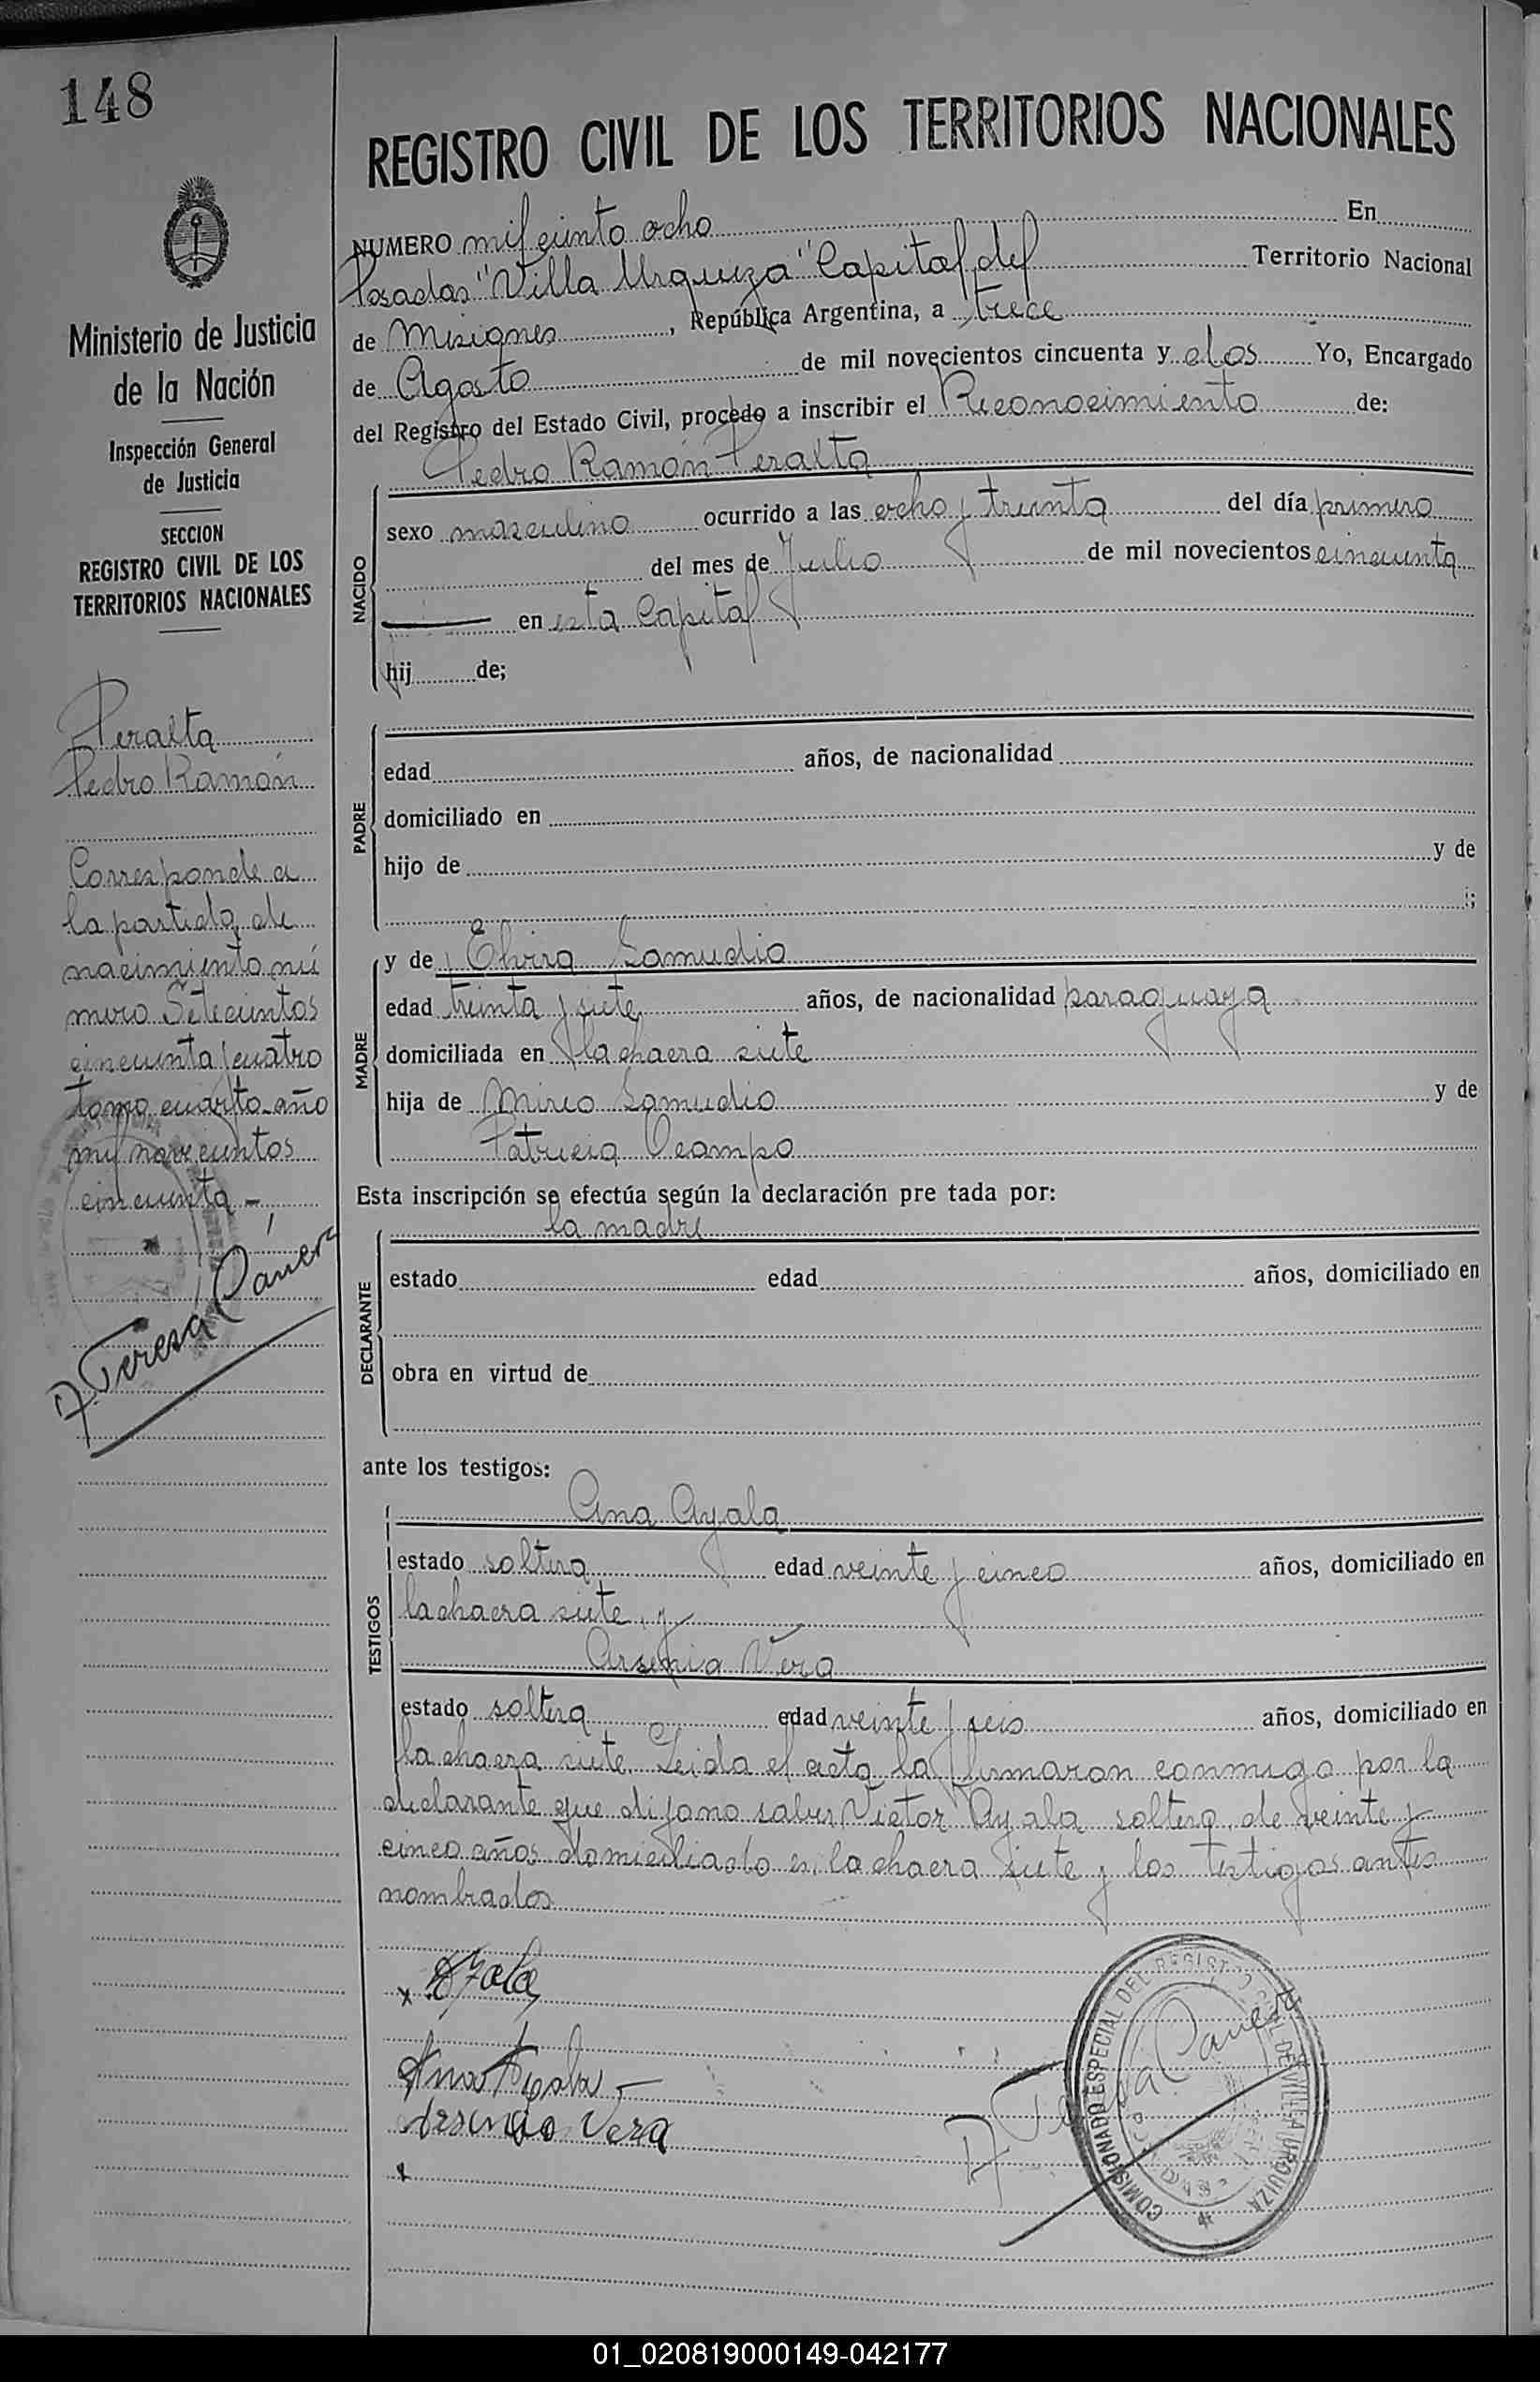 148
REGISTRO CIVIL DE LOS TERRITORIOS NACIONALES
Ministerio de Justicia
de la Nación
Inspección General
de Justicia
SECCION
REGISTRO CIVIL DE LOS
TERRITORIOS NACIONALES
Peralta
Pedro Ramón
Corresponde a
la partida de
nacimiento nú
mero Setecientos
cincuenta y cuatro
tomo cuarto año
mil novecientos
cincuenta -
Teresa
NUMERO mil ciento ocho En
Posadas "Villa Urquiza" Capital del Territorio Nacional
de Misiones, República Argentina, a trece
de Agosto de mil novecientos cincuenta y dos Yo, Encargado
del Registro del Estado Civil, procedo a inscribir el Reconocimiento de:
Pedro Ramón Peralta
NACIDO
sexo masculino ocurrido a las ocho y treinta del día primero
del mes de Julio de mil novecientos cincuenta
en esta Capital
hij de;
PADRE
edad años, de nacionalidad
domiciliado en
hijo de y de
;
MADRE
y de Elvira Samudio
edad treinta y siete años, de nacionalidad paraguaya
domiciliada en la chacra siete
hija de Samudio y de
Patricia Ocampo
Esta inscripción se efectúa según la declaración pre tada por:
la madre
DECLARANTE
estado edad años, domiciliado en
obra en virtud de
ante los testigos:
TESTIGOS
Ana Ayala
estado soltera edad veinte y cinco años, domiciliado en
la chacra siete y
Arsenia Vera
estado soltera edad veinte y seis años, domiciliado en
la chacra siete. Leida el acta la firmaron conmigo por la
declarante que dijo no saber Victor Ayala soltero, de veinte y
cinco años domiciliado en la chacra siete y los testigos antes
nombrados
x Ayala
Ana Ayala -
Vera
COMISIONADO ESPECIAL DEL REGISTRO CIVIL DE VILLA URQUIZA
01_020819000149-042177